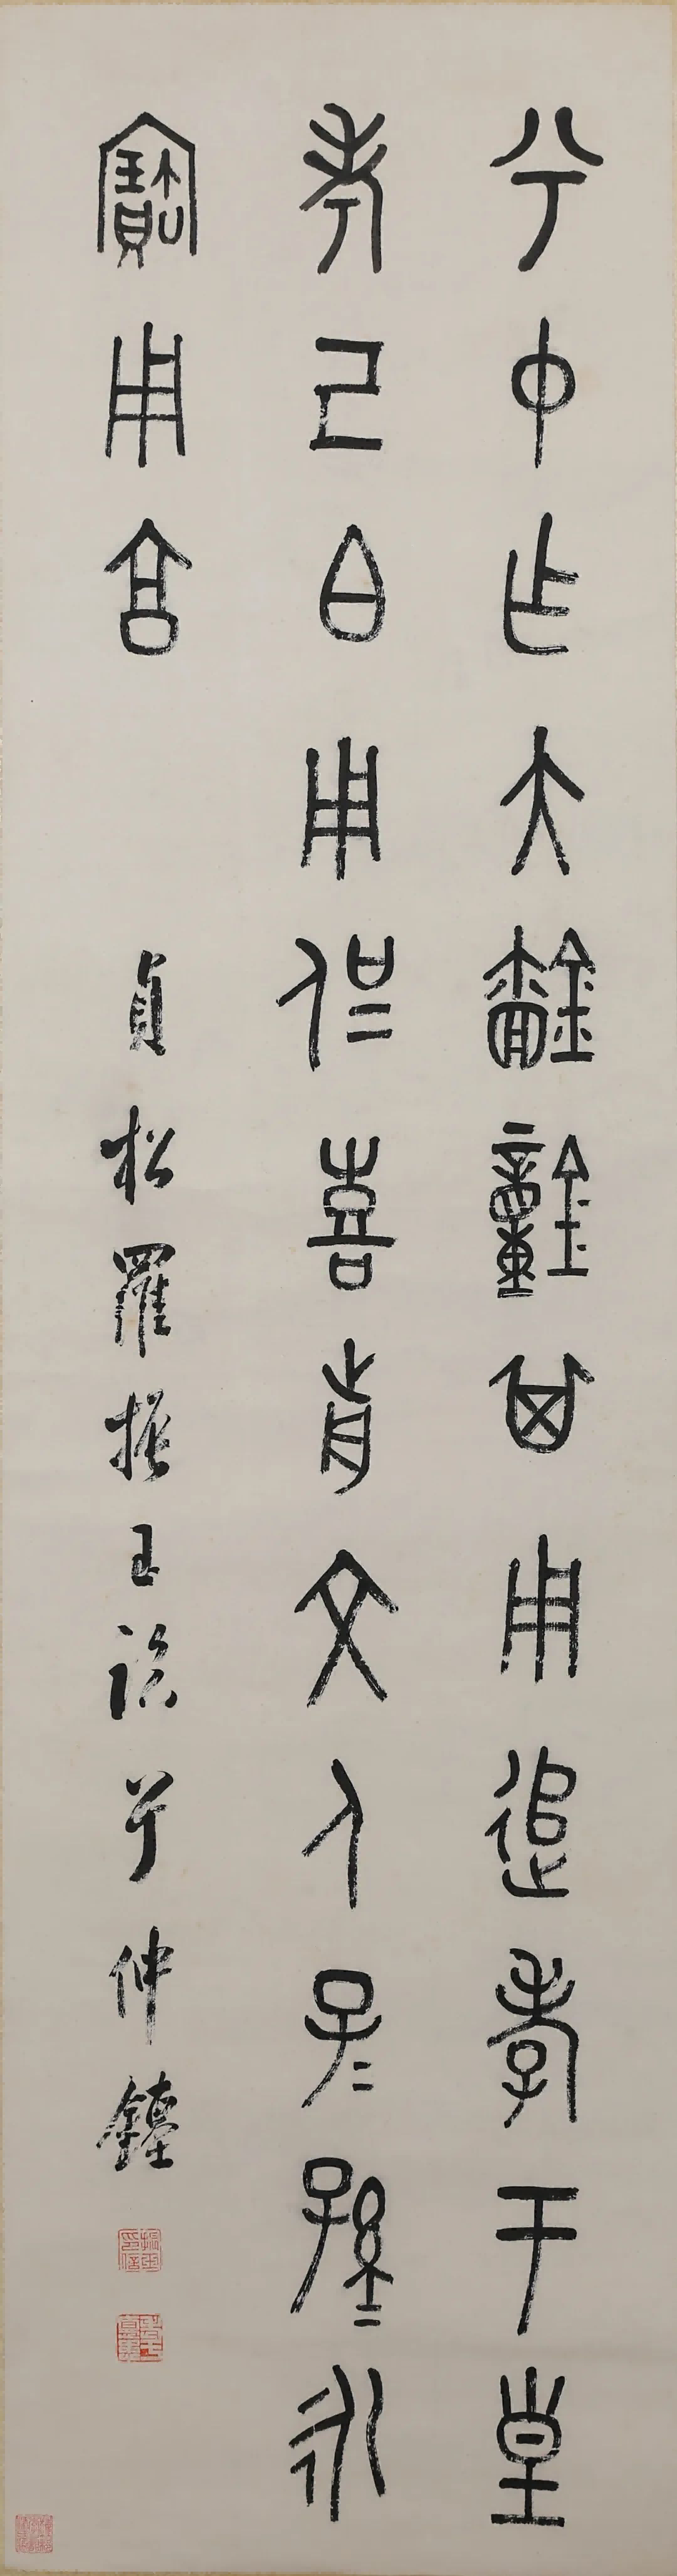 兮中乍大鐘其用追孝于皇
考己白用侃喜前文人子＝孫＝永
寶用享
貞松羅振玉臨兮仲鐘
振玉印信